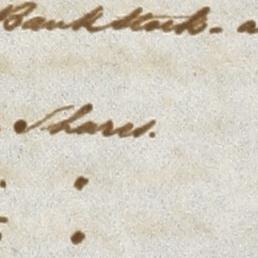 Bank Stock. a
Shares.